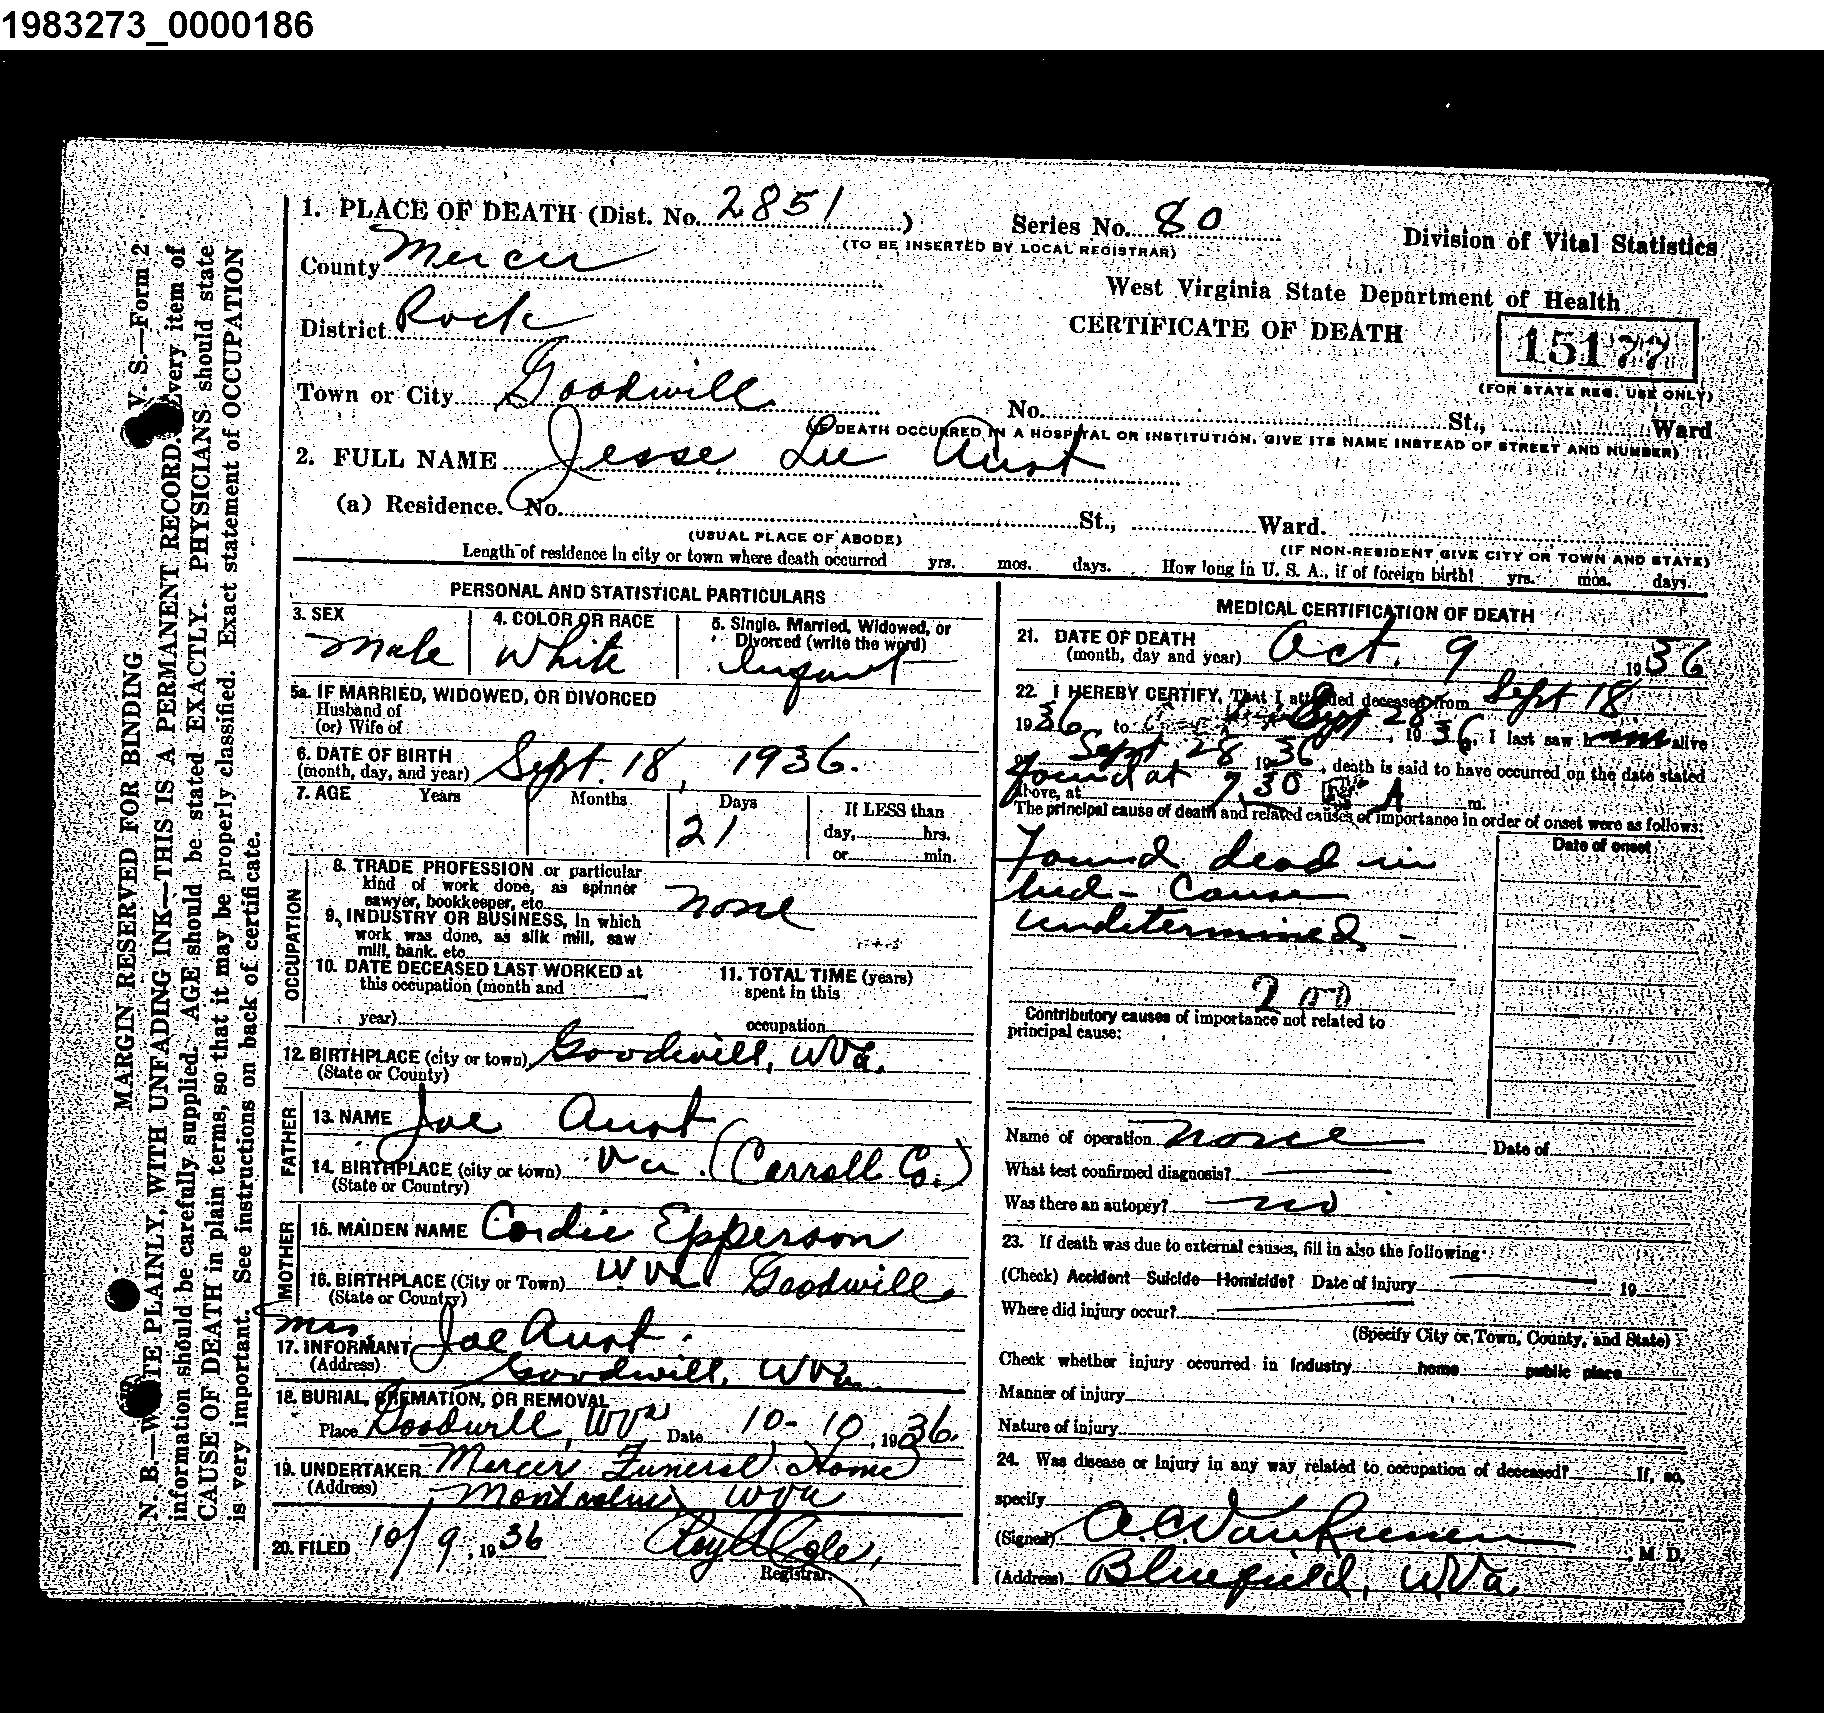 1983273_0000186
1. PLACE OF DEATH (Dist. No. 2851 )
Series No. 80
(TO BE INSERTED BY LOCAL REGISTRAR)
Division of Vital Statistics
County Mercer
West Virginia State Department of Health
District Rock
CERTIFICATE OF DEATH
15177
(FOR STATE REG. USE ONLY)
Town or City Goodwill
No. St., Ward
(IF DEATH OCCURRED IN A HOSPITAL OR INSTITUTION, GIVE ITS NAME INSTEAD OF STREET AND NUMBER)
2. FULL NAME Jesse Lee Aust
(a) Residence. No. St., Ward.
(USUAL PLACE OF ABODE)
(IF NON-RESIDENT GIVE CITY OR TOWN AND STATE)
Length of residence in city or town where death occurred yrs. mos. days. How long in U. S. A., if of foreign birth? yrs. mos. days.
PERSONAL AND STATISTICAL PARTICULARS
3. SEX
Male
4. COLOR OR RACE
White
5. Single, Married, Widowed, or
Divorced (write the word)
Infant
5a. IF MARRIED, WIDOWED, OR DIVORCED
Husband of
(or) Wife of
6. DATE OF BIRTH
(month, day, and year) Sept. 18, 1936.
7. AGE Years Months Days
21
If LESS than
day, hrs.
or min.
OCCUPATION
8. TRADE PROFESSION or particular
kind of work done, as spinner
sawyer, bookkeeper, etc. none
9. INDUSTRY OR BUSINESS, in which
work was done, as silk mill, saw
mill, bank, etc.
10. DATE DECEASED LAST WORKED at
this occupation (month and
year)
11. TOTAL TIME (years)
spent in this
occupation
12. BIRTHPLACE (city or town) Goodwill, WVa.
(State or County)
FATHER
13. NAME Joe Aust
14. BIRTHPLACE (city or town) Va. (Carroll Co.)
(State or Country)
MOTHER
15. MAIDEN NAME Cordie Epperson
16. BIRTHPLACE (City or Town) WVa Goodwill
(State or Country)
17. INFORMANT Mrs. Joe Aust.
(Address) Goodwill, WVa
18. BURIAL, CREMATION, OR REMOVAL
Place Goodwill, WVa Date 10-10, 1936.
19. UNDERTAKER Mercer Funeral Home
(Address) Montcalm WVa
20. FILED 10/9, 1936 Roy H Cole,
Registrar.
MEDICAL CERTIFICATION OF DEATH
21. DATE OF DEATH
(month, day and year) Oct. 9 1936
22. I HEREBY CERTIFY, That I attended deceased from Sept 18
1936 to Sept 28, 1936, I last saw him alive
Sept 28 1936, death is said to have occurred on the date stated
found at
above, at 7,30 A m.
The principal cause of death and related causes of importance in order of onset were as follows:
Date of onset
Found dead in
bed - Cause
undetermined -
200
Contributory causes of importance not related to
principal cause:
Name of operation none Date of
What test confirmed diagnosis?
Was there an autopsy? no
23. If death was due to external causes, fill in also the following
(Check) Accident—Suicide—Homicide? Date of injury 19
Where did injury occur?
(Specify City or Town, County, and State)
Check whether injury occurred in industry home public place
Manner of injury
Nature of injury
24. Was disease or injury in any way related to occupation of deceased? If, so,
specify
(Signed) , M. D.
(Address) Bluefield, WVa.
V. S.—Form 2
MARGIN RESERVED FOR BINDING
N. B.—WRITE PLAINLY, WITH UNFADING INK—THIS IS A PERMANENT RECORD. Every item of
information should be carefully supplied. AGE should be stated EXACTLY. PHYSICIANS should state
CAUSE OF DEATH in plain terms, so that it may be properly classified. Exact statement of OCCUPATION
is very important. See instructions on back of certificate.